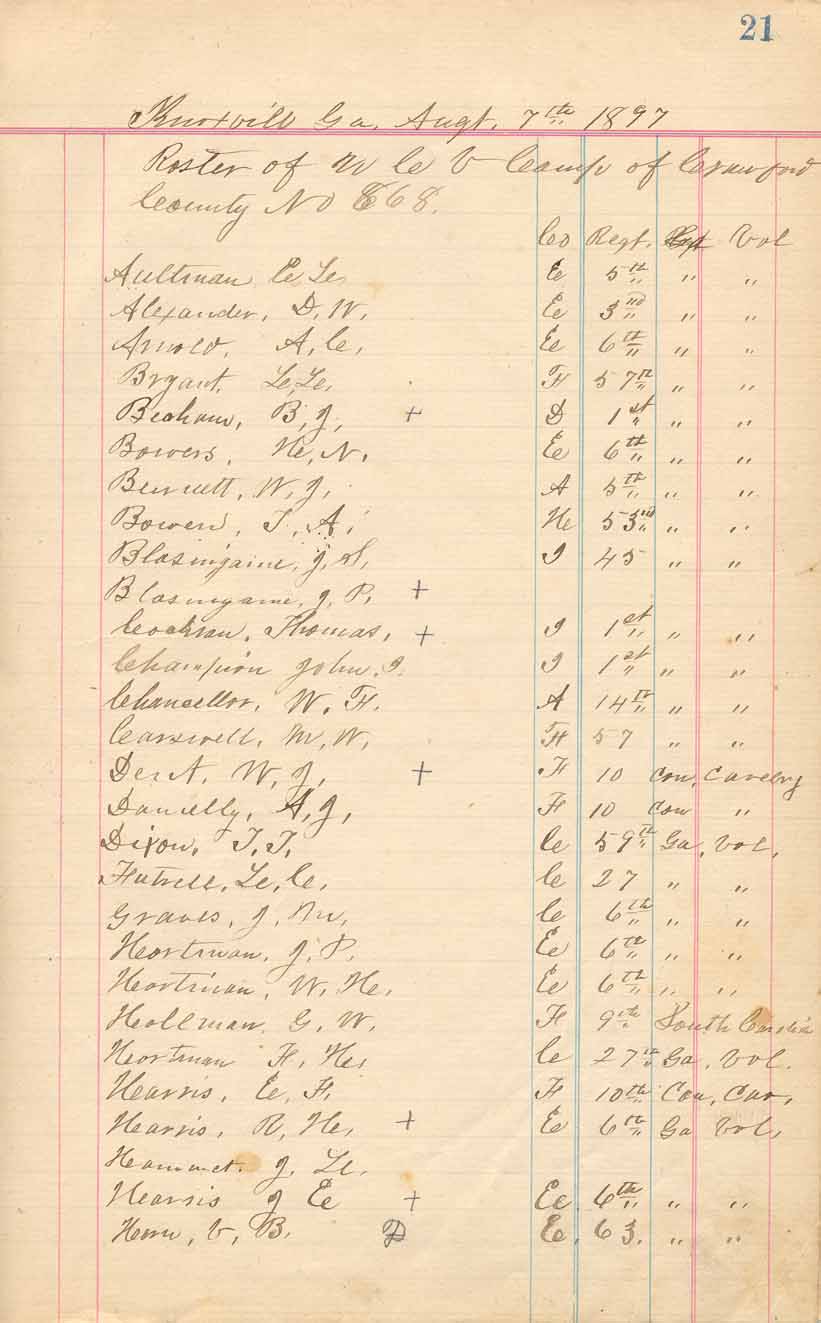 21
Knoxvill Ga. Augt. 7th 1897
Roster of M C V Camp of Crawford
County No 868.
Co Regt. Vol
Aultman C, L, E 5th " "
Alexander, D, W, E 3rd " "
Arnold, A, C, E 6th " "
Bryant, L, L, F 57th " "
Becham, B, J, + D 1st " "
Bowers, H, N, E 6th " "
Bennett, W, J, A 5th " "
Bowen, T, A, H 53rd " "
Blasingaine, J, S, I 45 " "
Blasingame, J, P, +
Cochran, Thomas, + I 1st " "
Champion John. I. I 1st " "
Chancellor, W. F. A 14th " "
Carswell, M, W, F 57 " "
Dent, W, J, + F 10 Con, Cavelry
Danielly, A, J, F 10 Con "
Dixon, T, T, C 59th Ga, Vol,
Futrell, L, C, C 27 " "
Graves, J, M, C 6th " "
Hortman, J, P, E 6th " "
Hortman, W, H, E 6th " "
Hollman, G, W, F 9th South Carolina
Hortman F, H, C 27th Ga, Vol.
Harris, E, F, F 10th Con, Cav,
Harris, R, H, + E 6th Ga Vol,
Hammet. J, L,
Harris J E + E 6th " "
Horn, V, B. D E, 63, " "